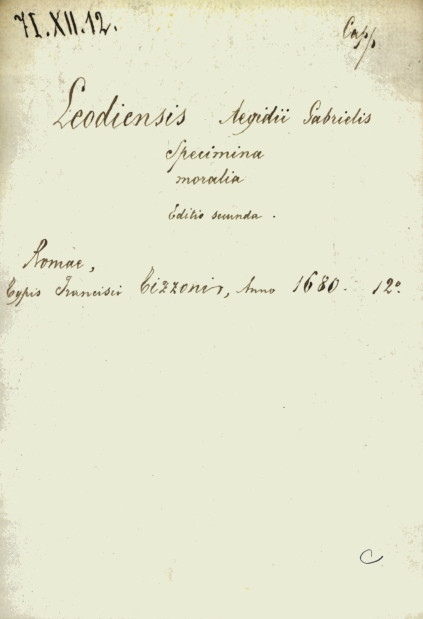 71.XII.12.
Capp.
Leodiensis Aegidii Gabrielis
Specimina
moralia
Editio secunda.
Romae,
Typis Francisci Tizzonis, Anno 1680. 12º.
C